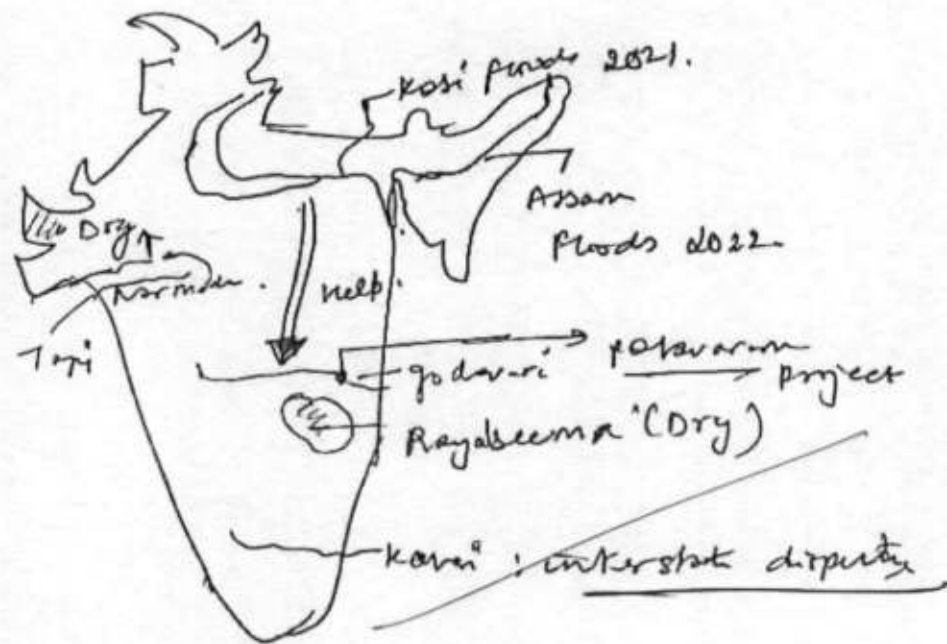 Kosi floods 2021.
Assam
floods 2022.
Dry
Narmada.
Tapi
Help.
godavari
polavaram
project
Rayalseema (Dry)
Kaveri : interstate dispute